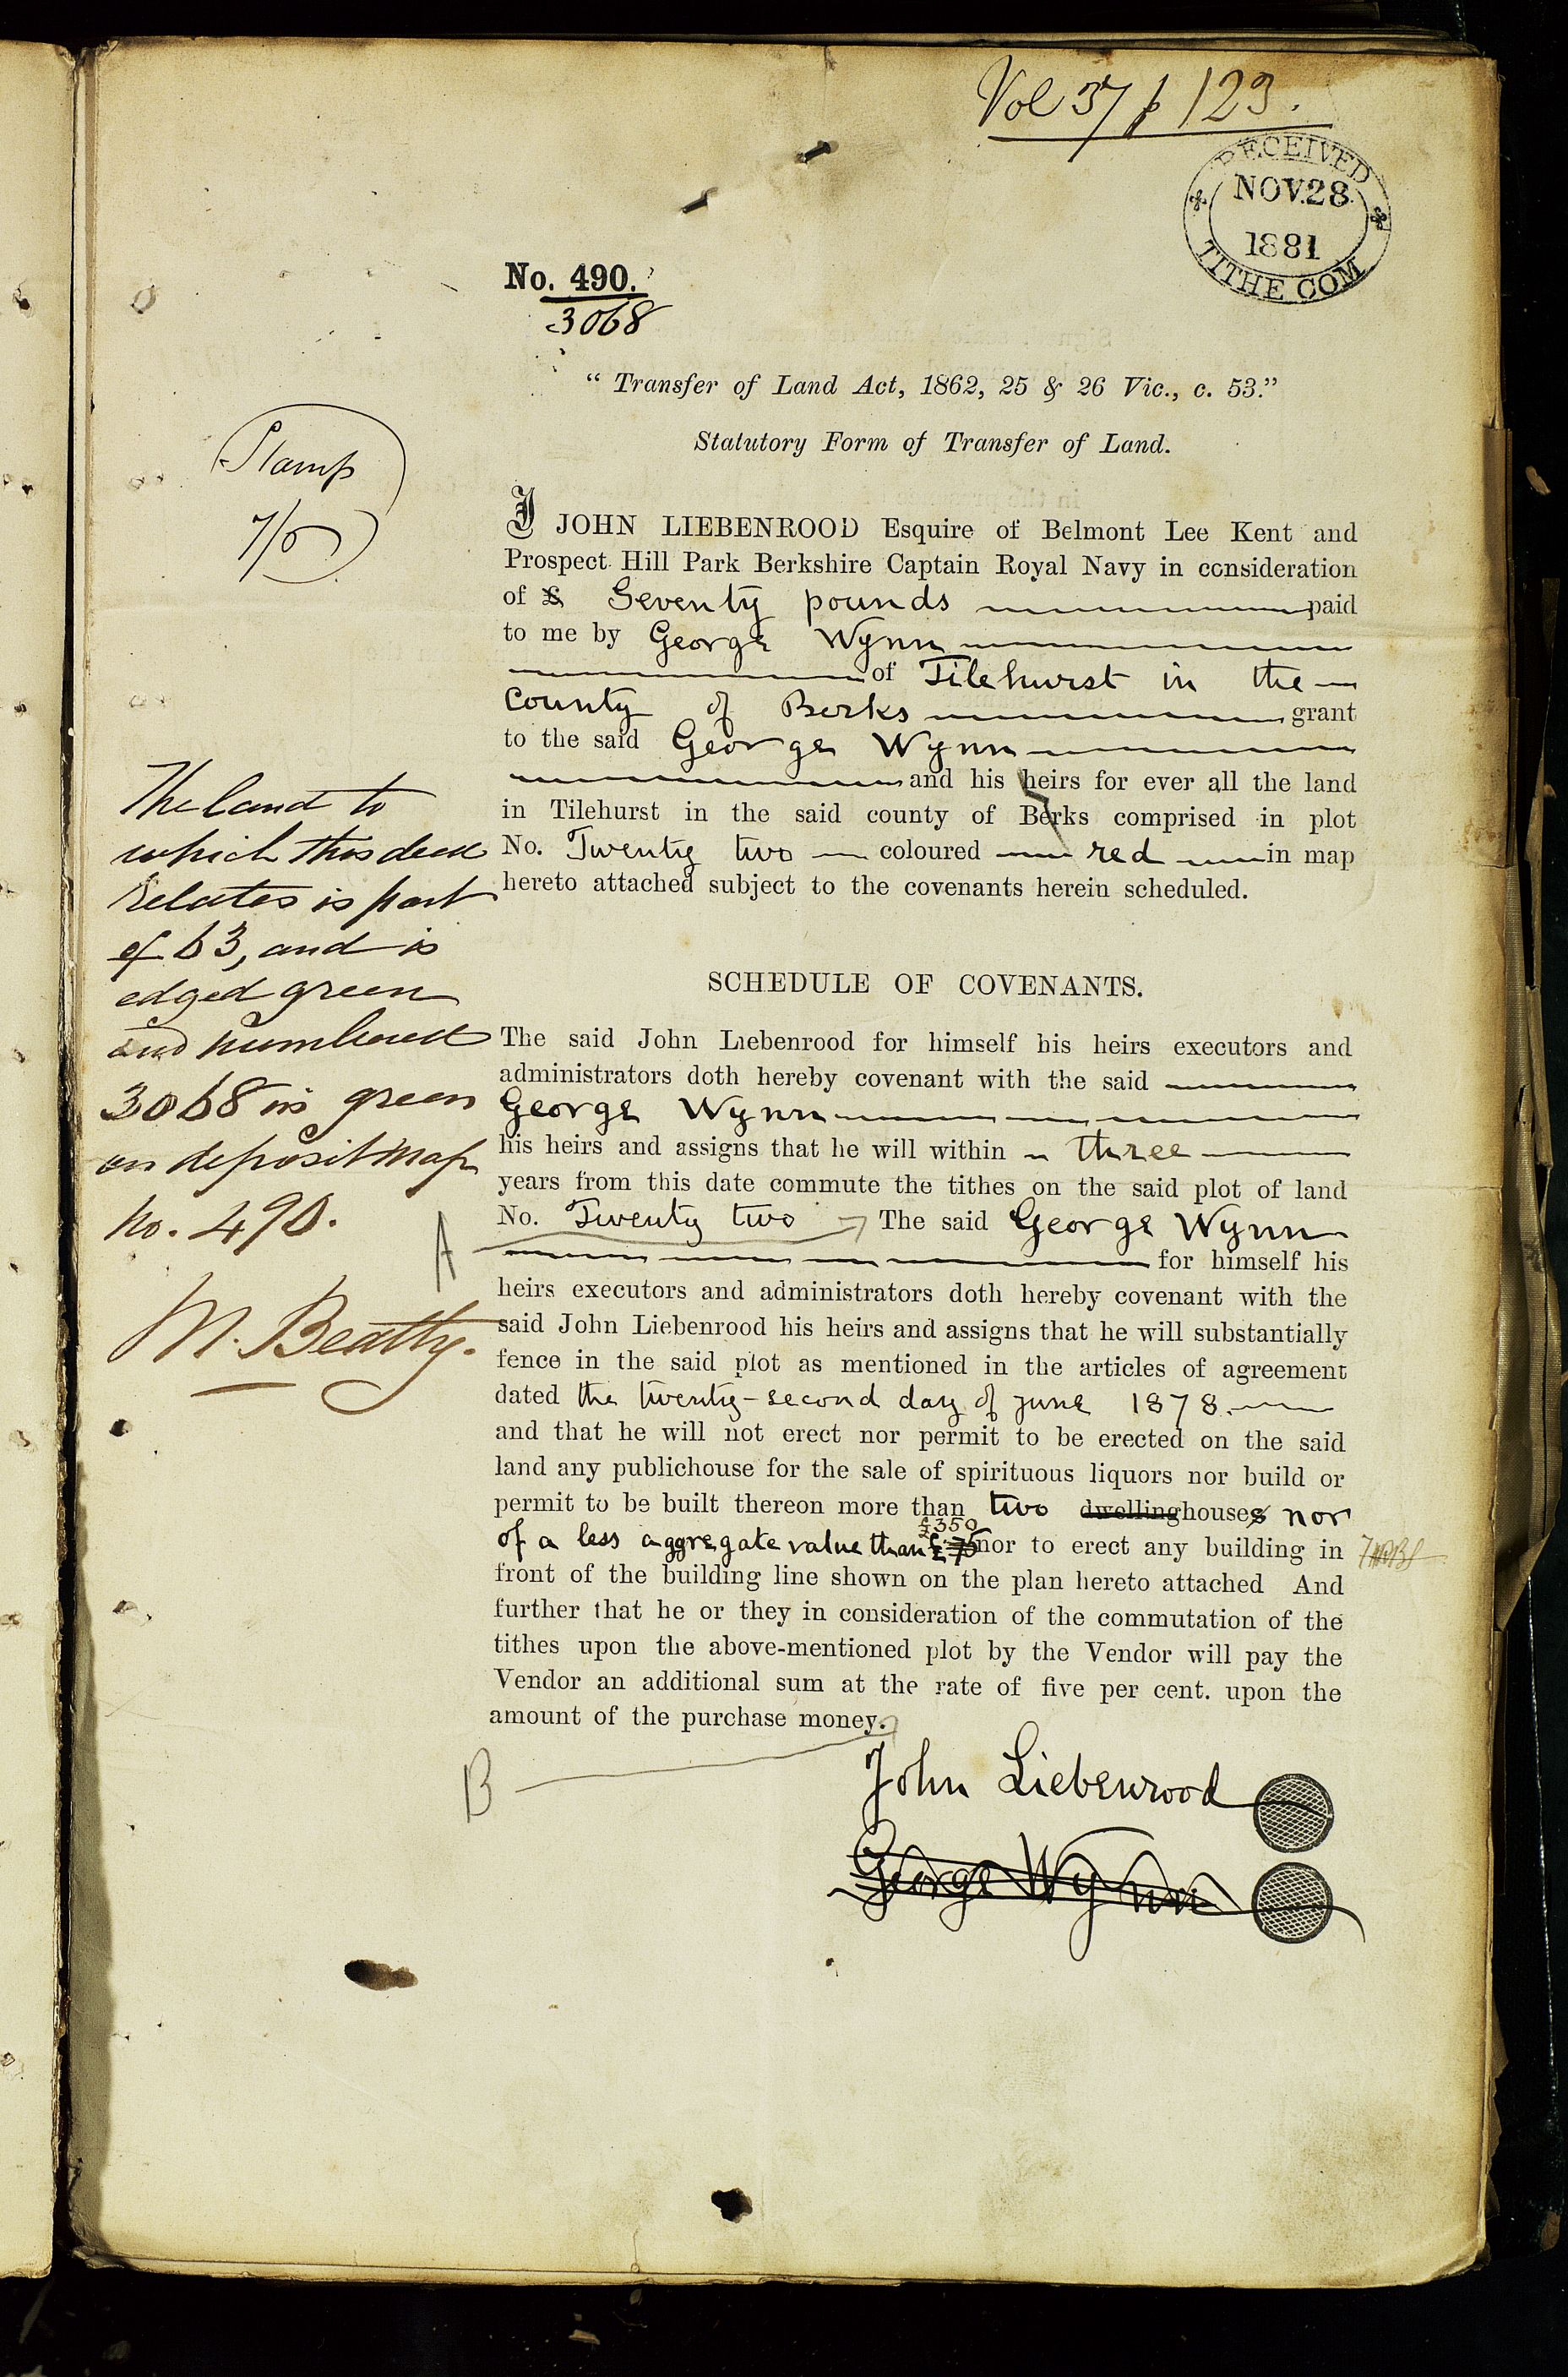 Vol 37 p 123.
RECEIVED
NOV.28
1881
TITHE COM
No. 490.
3068
"Transfer of Land Act, 1862, 25 & 26 Vic., c. 53."
Statutory Form of Transfer of Land.
Stamp
7/6
I JOHN LIEBENROOD Esquire of Belmont Lee Kent and
Prospect Hill Park Berkshire Captain Royal Navy in consideration
of £ Seventy pounds paid
to me by George Wynn
of Tilehurst in the
County of Berks grant
to the said George Wynn
and his heirs for ever all the land
in Tilehurst in the said county of Berks comprised in plot
No. Twenty two coloured red in map
hereto attached subject to the covenants herein scheduled.
The land to
which this deed
relates is part
of 63, and is
edged green
and numbered
3068 in green
on deposit map
no. 490.
M. Beatty.
SCHEDULE OF COVENANTS.
The said John Liebenrood for himself his heirs executors and
administrators doth hereby covenant with the said
George Wynn
his heirs and assigns that he will within three
years from this date commute the tithes on the said plot of land
No. Twenty two The said George Wynn
A
for himself his
heirs executors and administrators doth hereby covenant with the
said John Liebenrood his heirs and assigns that he will substantially
fence in the said plot as mentioned in the articles of agreement
dated the twenty-second day of june 1878.
and that he will not erect nor permit to be erected on the said
land any publichouse for the sale of spirituous liquors nor build or
permit to be built thereon more than two dwellinghouses nor
£350
of a less aggregate value than £75 nor to erect any building in
front of the building line shown on the plan hereto attached And
further that he or they in consideration of the commutation of the
tithes upon the above-mentioned plot by the Vendor will pay the
Vendor an additional sum at the rate of five per cent. upon the
amount of the purchase money.
B
John Liebenrood
George Wynn